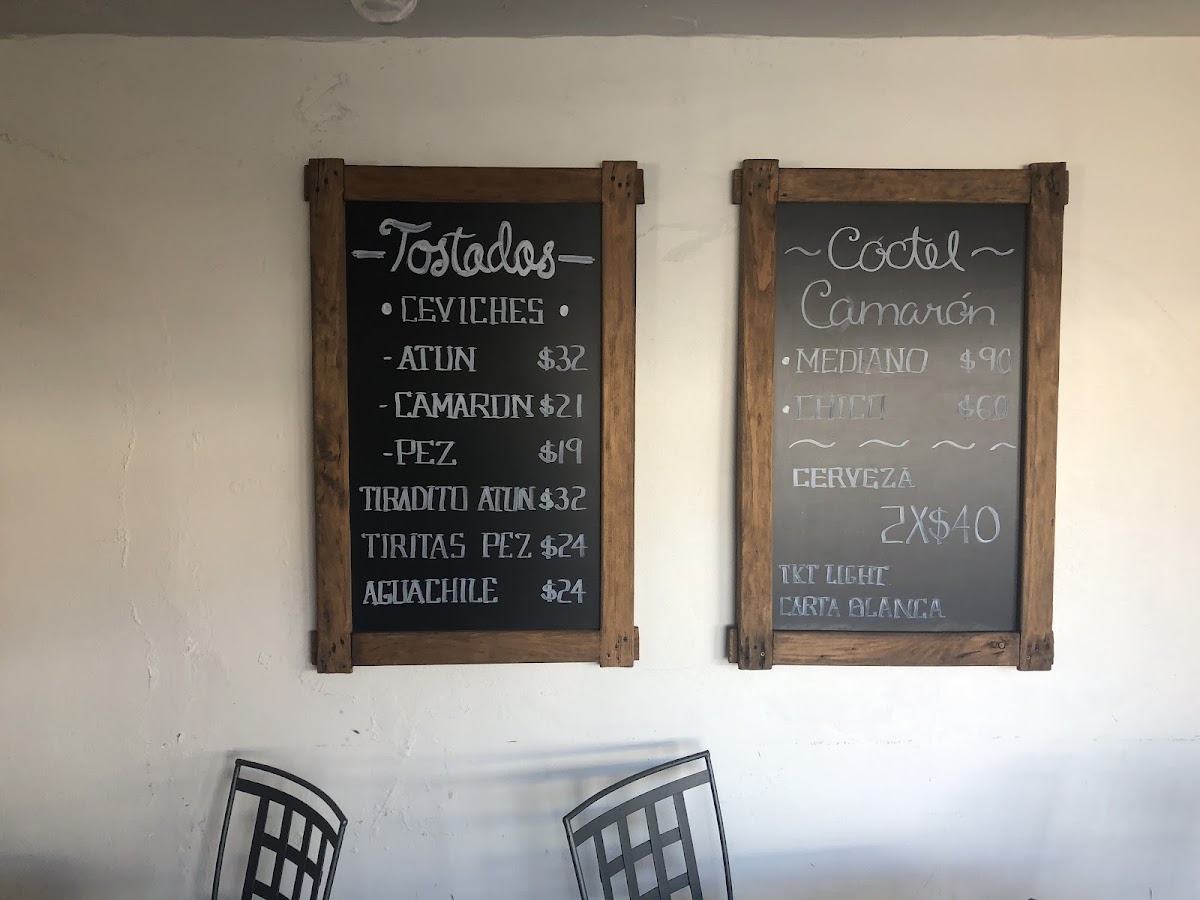 - Tostadas -
• CEVICHES •
- ATUN $32
- CAMARON $21
- PEZ $19
TIRADITO ATUN $32
TIRITAS PEZ $24
AGUACHILE $24
~ Cóctel ~
Camarón
• MEDIANO $90
• CHICO $60
~ ~ ~ ~
CERVEZA
2X$40
TKT LIGHT
CARTA BLANCA